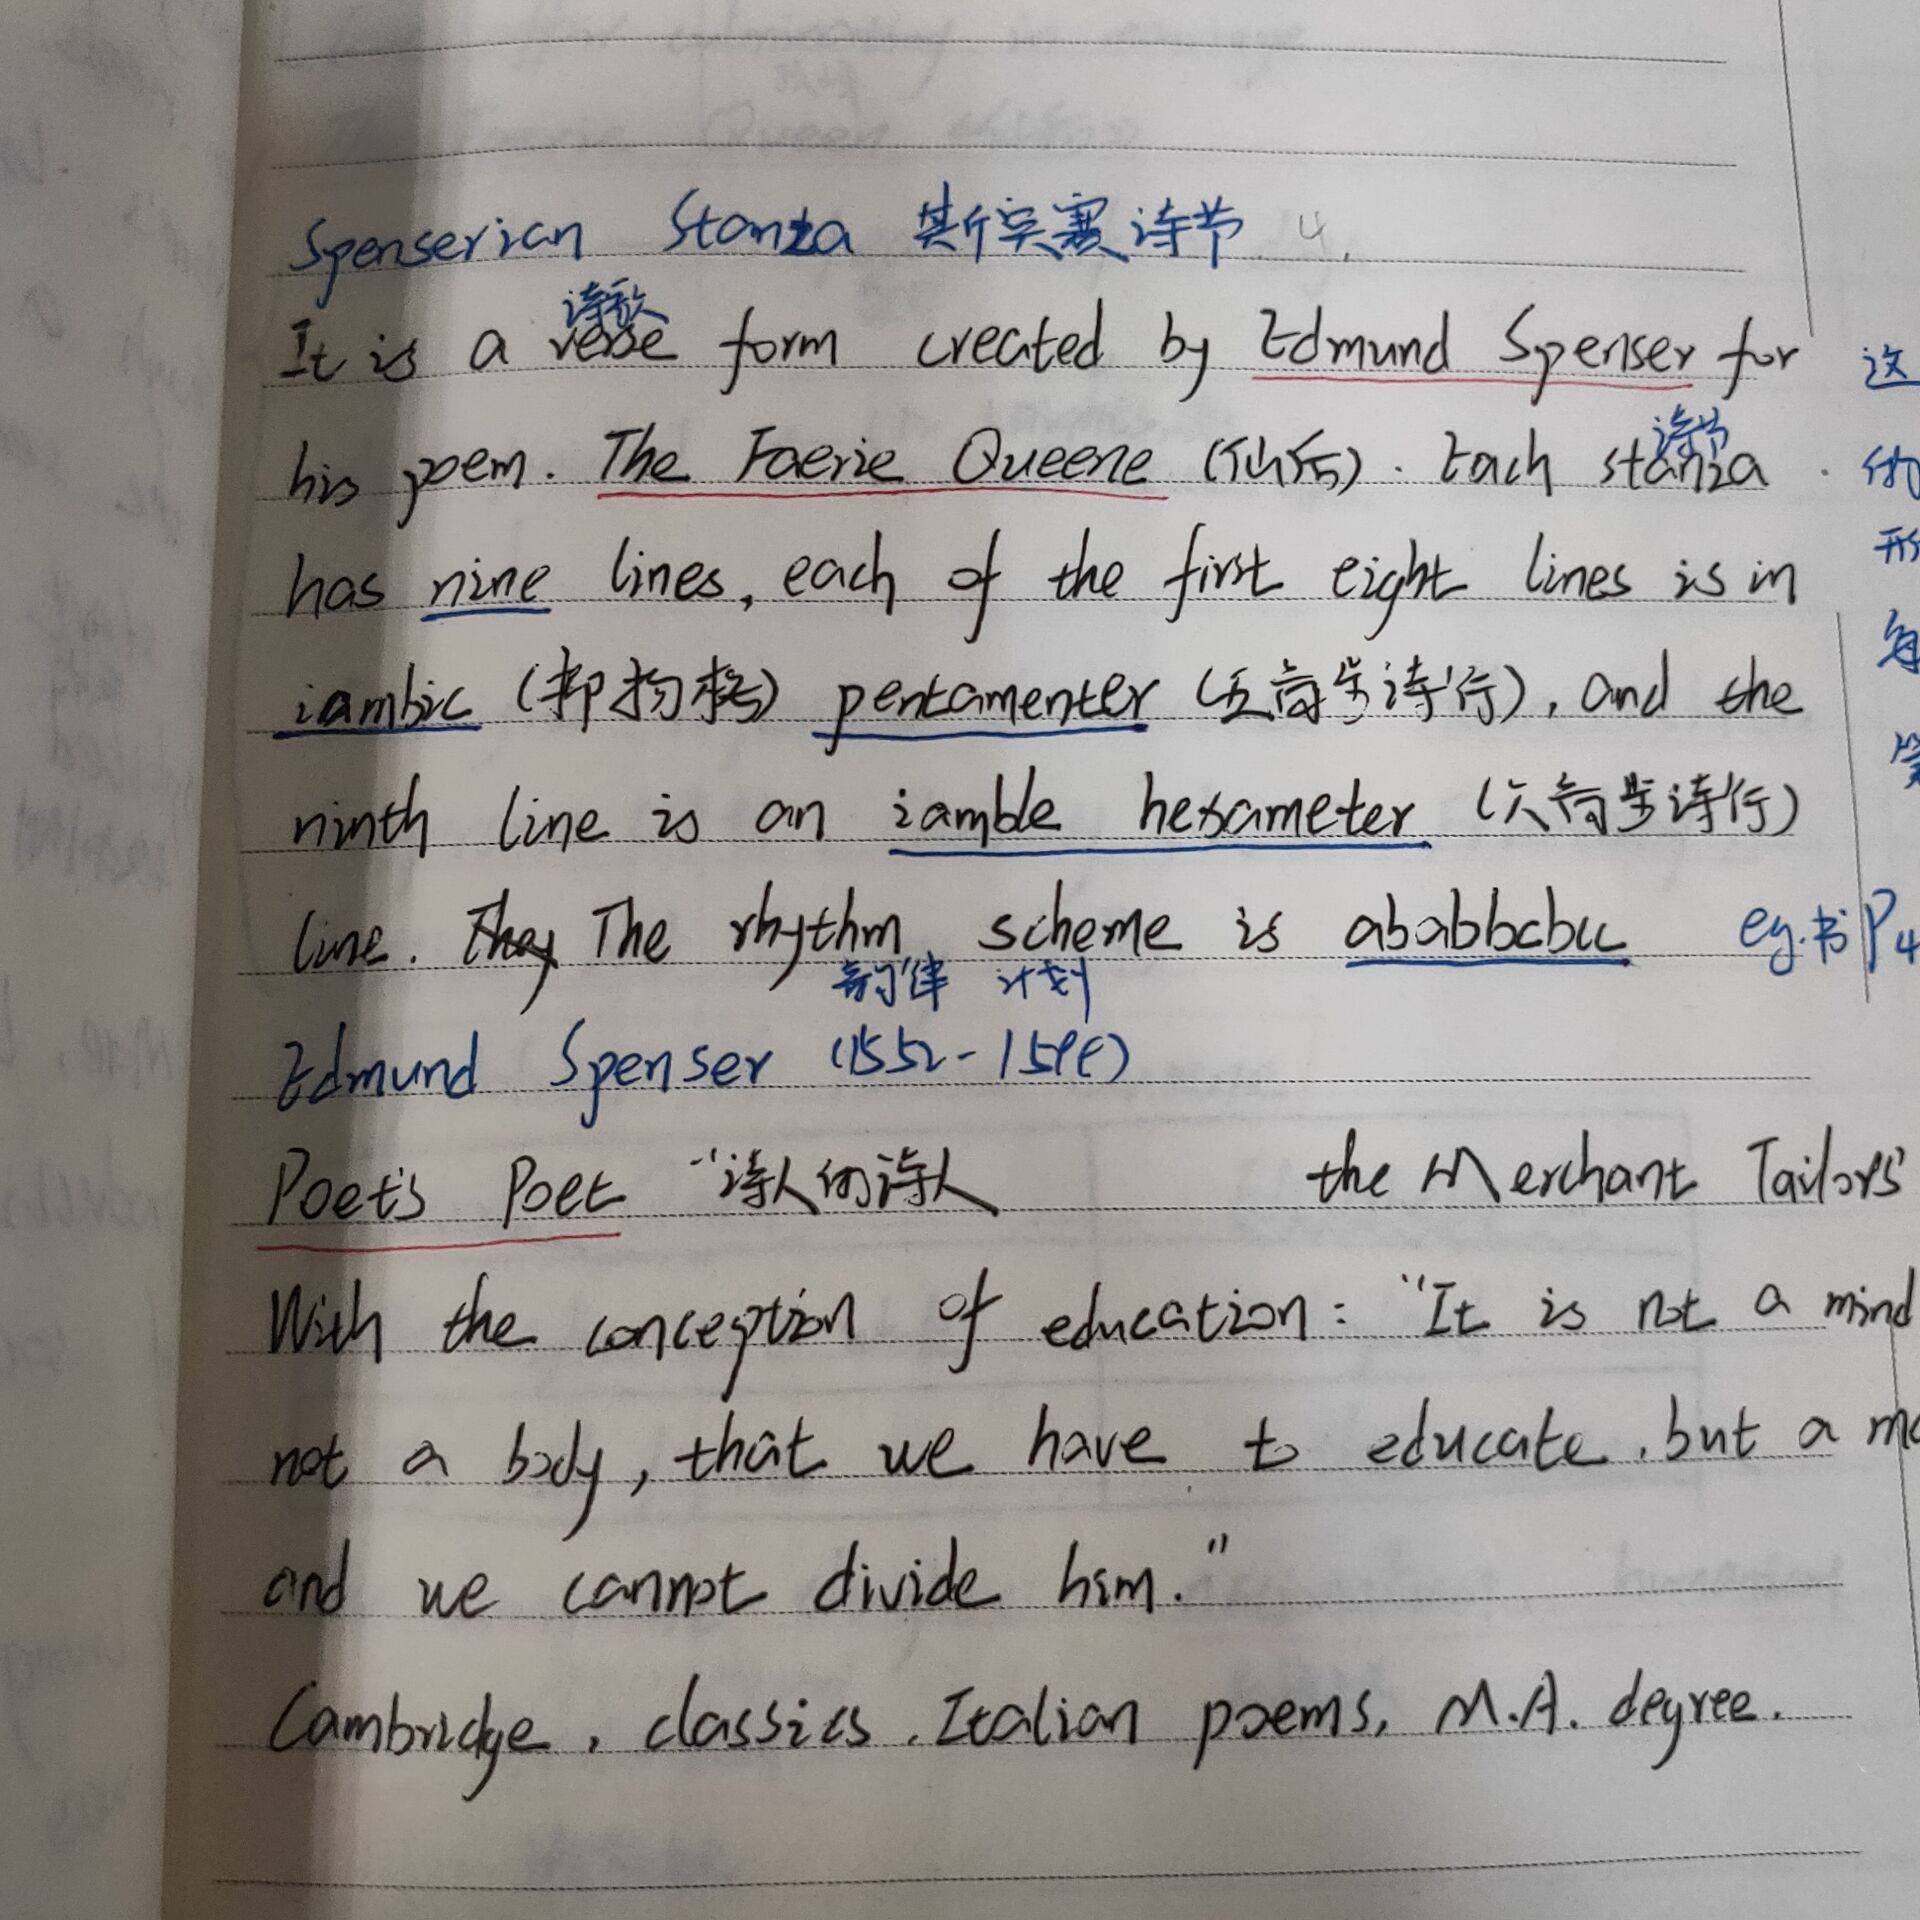 Spenserian Stanza 斯宾塞诗节 4.
诗歌
It is a verse form created by Edmund Spenser for
诗节
his poem. The Faerie Queene (仙后). Each stanza.
has nine lines, each of the first eight lines is in
iambic (抑扬格) pentamenter (五音步诗行), and the
ninth line is an iamble hexameter (六音步诗行)
line. They The rhythm scheme is ababbcbcc eg. 书P4
韵律 计划
Edmund Spenser (1552-1599)
Poet's Poet "诗人的诗人 the Merchant Tailors'
With the conception of education: "It is not a mind
not a body, that we have to educate, but a
and we cannot divide him."
Cambridge, classics, Italian poems, M.A. degree.
这
的
形
每
第